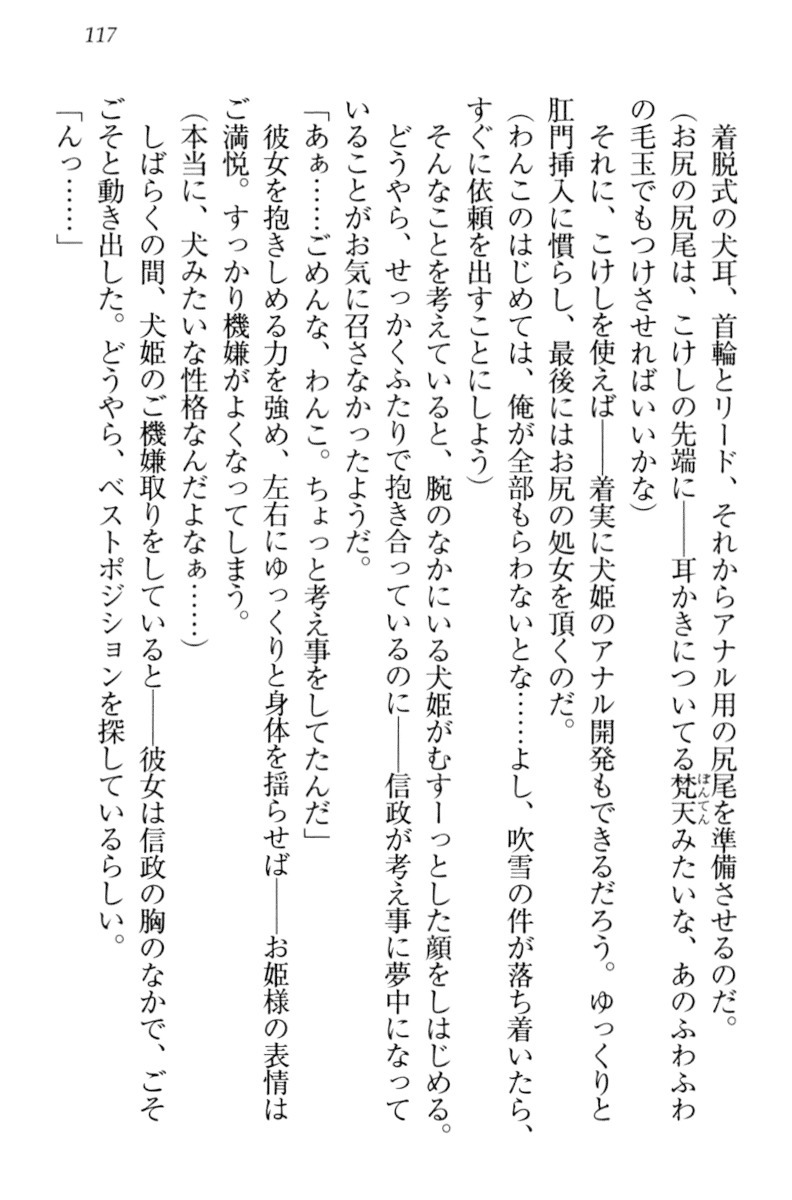 117
着脱式の犬耳、首輪とリード、それからアナル用の尻尾を準備させるのだ。
(お尻の尻尾は、こけしの先端に――耳かきについてる梵天みたいな、あのふわふわ
ぼんてん
の毛玉でもつけさせればいいかな)
それに、こけしを使えば――着実に犬姫のアナル開発もできるだろう。ゆっくりと
肛門挿入に慣らし、最後にはお尻の処女を頂くのだ。
(わんこのはじめては、俺が全部もらわないとな……よし、吹雪の件が落ち着いたら、
すぐに依頼を出すことにしよう)
そんなことを考えていると、腕のなかにいる犬姫がむすーっとした顔をしはじめる。
どうやら、せっかくふたりで抱き合っているのに――信政が考え事に夢中になって
いることがお気に召さなかったようだ。
「あぁ……ごめんな、わんこ。ちょっと考え事をしてたんだ」
彼女を抱きしめる力を強め、左右にゆっくりと身体を揺らせば――お姫様の表情は
ご満悦。すっかり機嫌がよくなってしまう。
(本当に、犬みたいな性格なんだよなぁ……)
しばらくの間、犬姫のご機嫌取りをしていると――彼女は信政の胸のなかで、ごそ
ごそと動き出した。どうやら、ベストポジションを探しているらしい。
「んっ……」